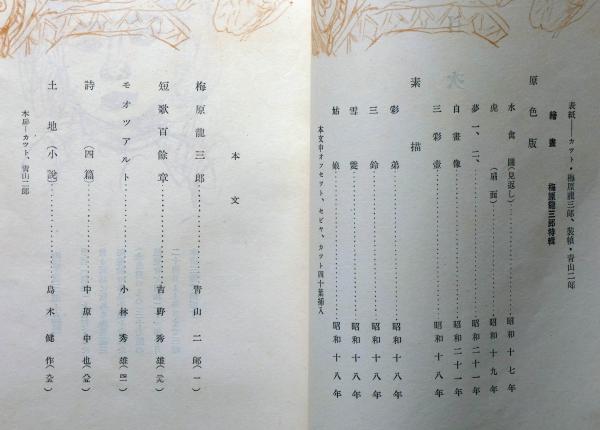 表紙――カット・梅原龍三郎、装幀・青山二郎
繪畫 梅原龍三郎特輯
原色版
水禽圖(見返し)……昭和十七年
虎(扇面)……昭和十九年
夢一、二、……昭和二十一年
自畫像……昭和二十一年
三彩壺……昭和十八年
素描
彩弟……昭和十八年
三鈴……昭和十八年
雪鶯……昭和十八年
姑娘……昭和十八年
本文中オフセット、セピヤ、カット四十葉挿入
本文
梅原龍三郎……靑山二郎(一)
短歌百餘章……吉野秀雄(元)
モオツアルト……小林秀雄(四一)
詩(四篇)……中原中也
土地(小說)……島木健作
本扉―カット、靑山二郎